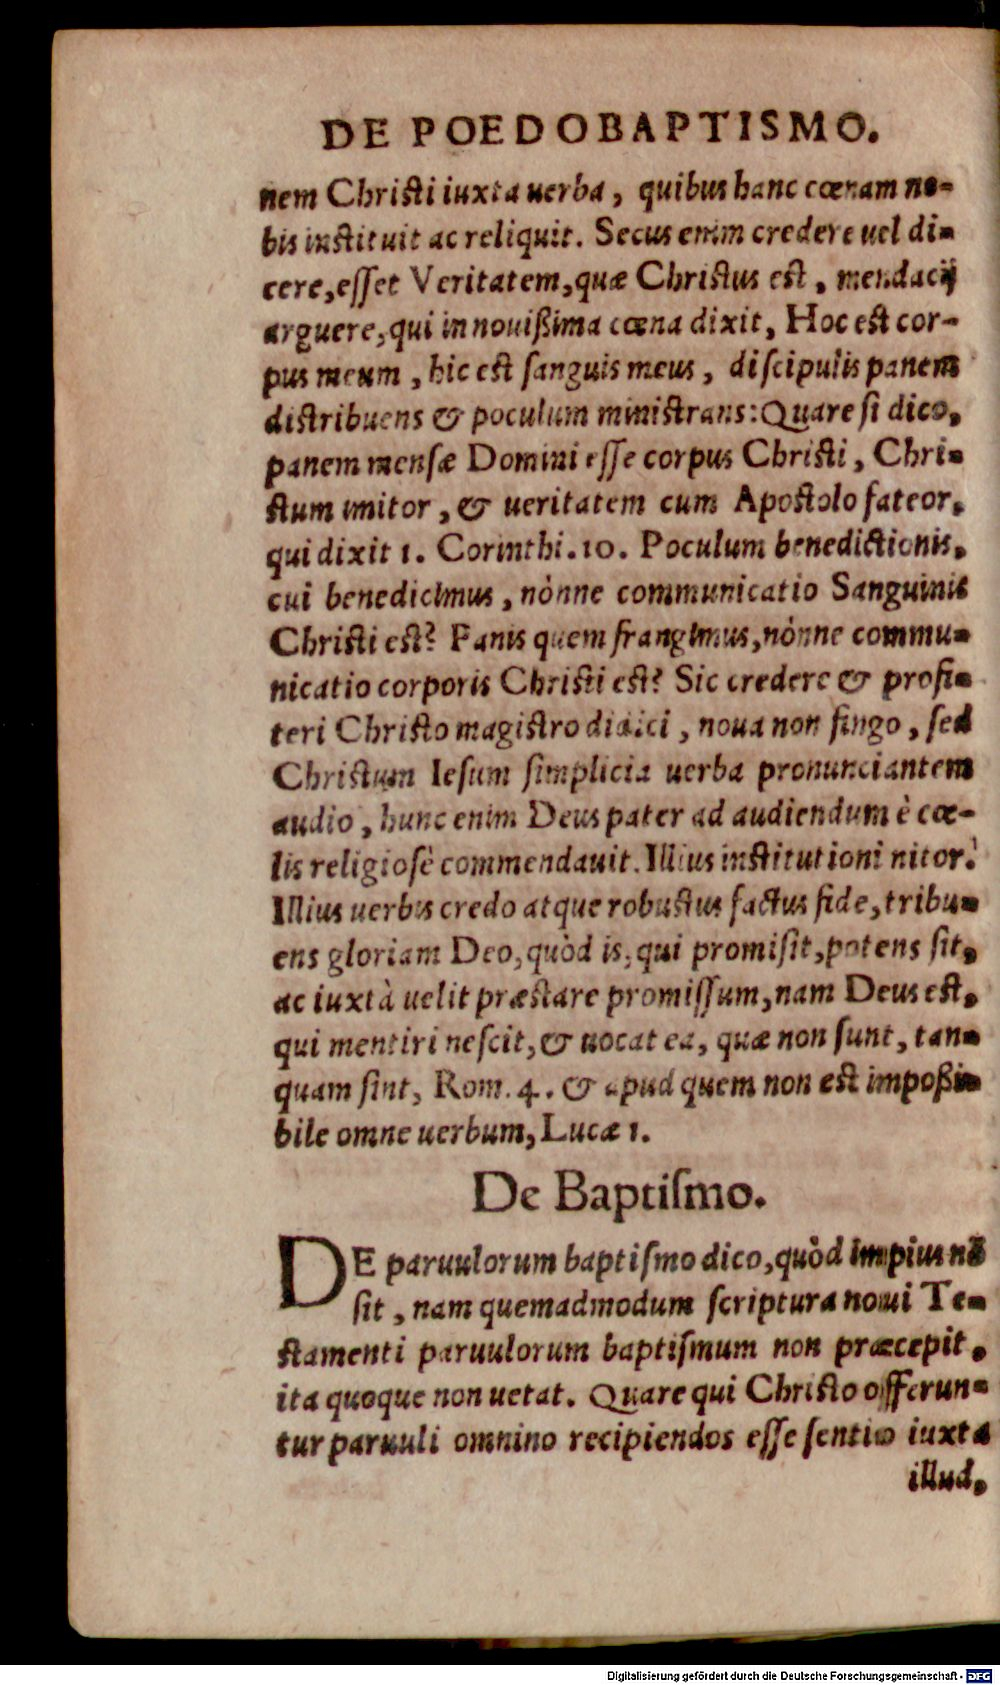 DE POEDOBAPTISMO.
nem Chriſti iuxta uerba, quibus hanc cœnam no-
bis inſtituit ac reliquit. Secus enim credere uel di-
cere, eſſet Veritatem, quæ Chriſtus eſt, mendacij
arguere, qui in nouißima cœna dixit, Hoc eſt cor-
pus meum, hic eſt ſanguis meus, diſcipulis panem
diſtribuens & poculum miniſtrans: Quare ſi dico,
panem menſæ Domini eſſe corpus Chriſti, Chri-
ſtum imitor, & ueritatem cum Apoſtolo fateor,
qui dixit 1. Corinthi. 10. Poculum benedictionis,
cui benedicimus, nònne communicatio Sanguinis
Chriſti eſt? Panis quem frangimus, nònne commu-
nicatio corporis Chriſti eſt? Sic credere & profi-
teri Chriſto magiſtro didici, noua non fingo, ſed
Chriſtum Ieſum ſimplicia uerba pronunciantem
audio, hunc enim Deus pater ad audiendum è cœ-
lis religioſè commendauit. Illius inſtitutioni nitor.
Illius uerbis credo atque robuſtus factus fide, tribu-
ens gloriam Deo, quòd is, qui promiſit, potens ſit,
ac iuxtà uelit præſtare promiſſum, nam Deus eſt,
qui mentiri neſcit, & uocat ea, quæ non ſunt, tan-
quam ſint, Rom. 4. & apud quem non eſt impoßi-
bile omne uerbum, Lucæ 1.
De Baptiſmo.
DE paruulorum baptiſmo dico, quòd impius nō
ſit, nam quemadmodum ſcriptura noui Te-
ſtamenti paruulorum baptiſmum non præcepit,
ita quoque non uetat. Quare qui Chriſto offerun-
tur paruuli omnino recipiendos eſſe ſentio iuxta
illud,
Digitalisierung gefördert durch die Deutsche Forschungsgemeinschaft - DFG